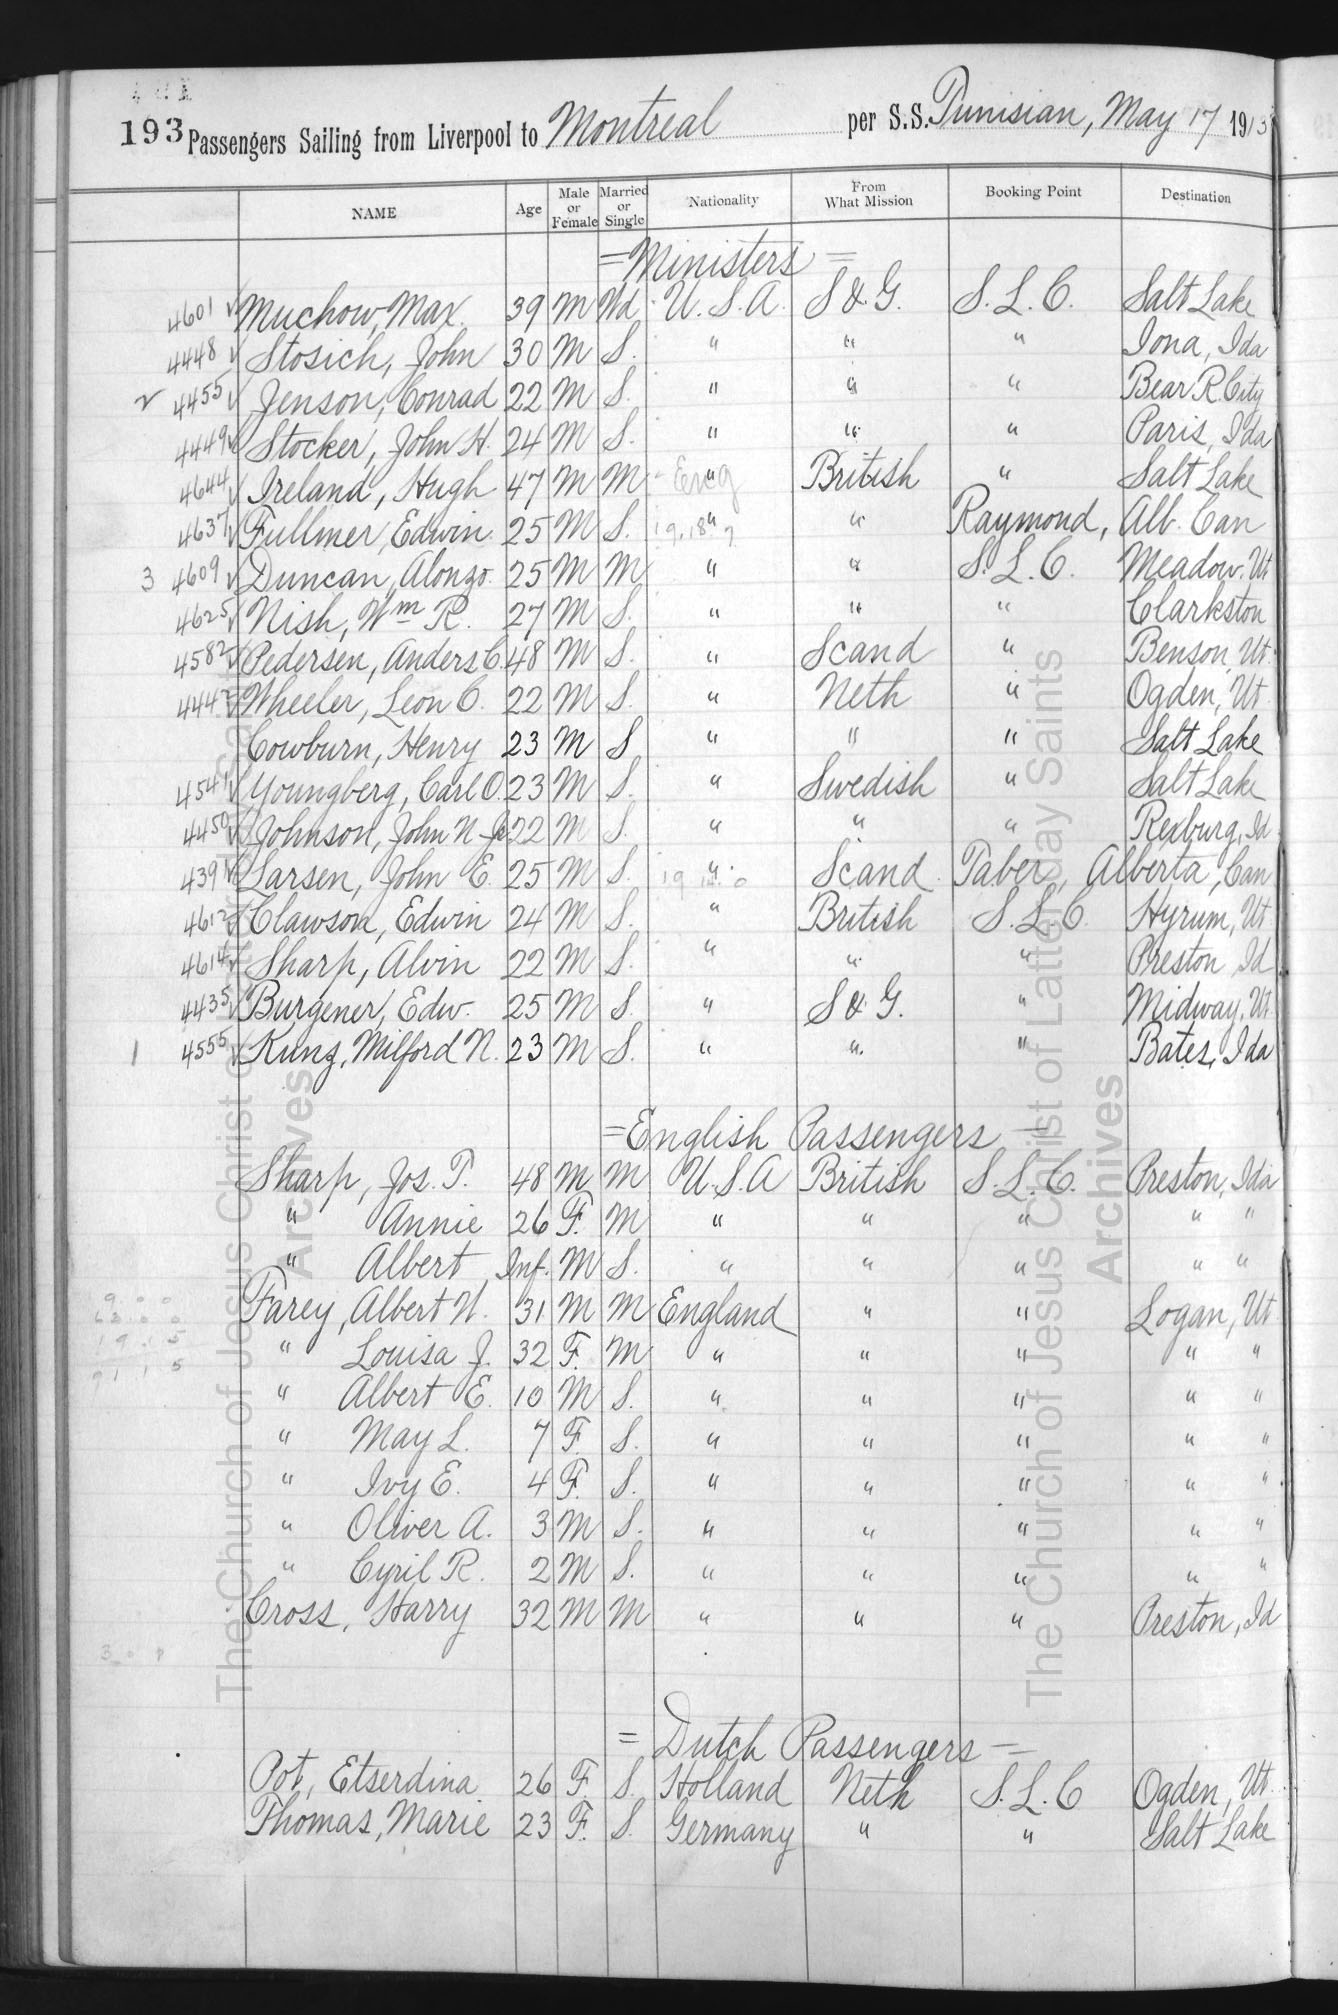 193 Passengers Sailing from Liverpool to Montreal per S.S. Tunisian, May 17 1913
NAME Age Male or Female Married or Single Nationality From What Mission Booking Point Destination
= Ministers =
4601 ✓ Muchow, Max. 39 M Wd U.S.A. S & G. S.L.C. Salt Lake
4448 ✓ Stosich, John 30 M S. " " " Iona, Ida
2 4455 ✓ Jenson, Conrad 22 M S. " " " Bear R. City
4449 ✓ Stocker, John H. 24 M S. " " " Paris, Ida
4644 ✓ Ireland, Hugh 47 M M " Eng British " Salt Lake
4637 ✓ Fullmer, Edwin 25 M S. " " Raymond, Alb. Can
3 4609 ✓ Duncan, Alonzo 25 M M " " S.L.C. Meadow, Ut
4625 ✓ Nish, Wm R. 27 M S. " " " Clarkston
4582 ✓ Pedersen, Anders C. 48 M S. " Scand " Benson, Ut.
4442 ✓ Wheeler, Leon C. 22 M S. " Neth " Ogden, Ut
Cowburn, Henry 23 M S " " " Salt Lake
4541 ✓ Youngberg, Carl O. 23 M S. " Swedish " Salt Lake
4450 ✓ Johnson, John N. Jr 22 M S. " " " Rexburg, Id
4391 ✓ Larsen, John E. 25 M S. " Scand. Taber, Alberta, Can
4612 ✓ Clawson, Edwin 24 M S. " British S.L.C. Hyrum, Ut
4614 ✓ Sharp, Alvin 22 M S. " " " Preston, Id
4435 ✓ Burgener, Edw. 25 M S. " S & G. " Midway, Ut.
1 4555 ✓ Kunz, Milford N. 23 M S. " " " Bates, Ida
= English Passengers =
Sharp, Jos. T. 48 M M U.S.A British S.L.C. Preston, Ida
" Annie 26 F. M " " " " "
" Albert Inf. M S. " " " " "
Farey, Albert W. 31 M M England " " Logan, Ut
" Louisa J. 32 F. M " " " " "
" Albert E. 10 M S. " " " " "
" May L. 7 F. S. " " " " "
" Ivy E. 4 F. S. " " " " "
" Oliver A. 3 M S. " " " " "
" Cyril R. 2 M S. " " " " "
Cross, Harry 32 M M " " " Preston, Id
= Dutch Passengers =
Pot, Etserdina 26 F. S. Holland Neth S.L.C Ogden, Ut.
Thomas, Marie 23 F. S. Germany " " Salt Lake
The Church of Jesus Christ of Latter-day Saints
Archives
The Church of Jesus Christ of Latter-day Saints
Archives